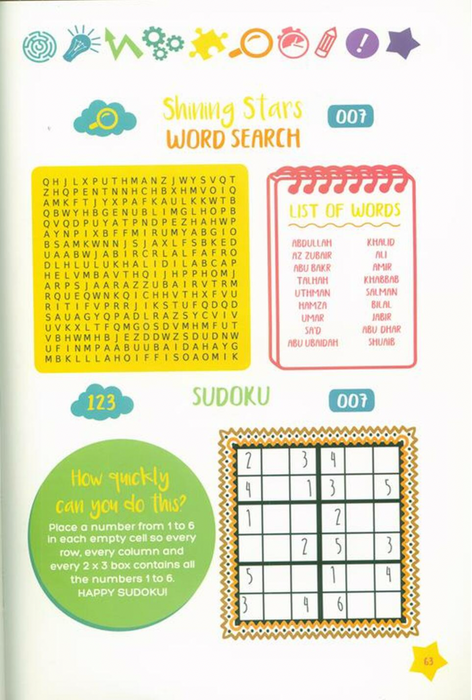 Shining Stars
WORD SEARCH
007
QHJLXPUTHMANZJWYSVQT
ZHQPENTNNHCHBXHMVOIQ
AMKFTJYXPAFKAULKKWTB
QBWYHBGENUBLIMGLHOPB
QVQDPUYATPNDPEZHAHWP
AYNPIXBFFMIRUMYABGIO
BSAMKWNNJSJAXLFSBKED
UAABWJABIRCRLALFAFRO
DLHLULUKHALIDILABCAP
HELVMBAVTHQIJHPPHOMJ
ARPSJAARAZZUBAIRVTRM
RQUEQWNKQICHHVTHXFVU
RITIFVPRRJIKSTUFQDQD
SAUAGYQPADLRAZSYCVIV
UVKXLTFQMGOSDVMHMFUT
VBHWMHBJEZDDWZSDUDNW
UFINMPAABUUBAIDAHAYG
MBKLLLAHQIFFISOAOMIK
LIST OF WORDS
ABDULLAH KHALID
AZ ZUBAIR ALI
ABU BAKR AMIR
TALHAH KHABBAB
UTHMAN SALMAN
HAMZA BILAL
UMAR JABIR
SA'D ABU DHAR
ABU UBAIDAH SHUAIB
123
SUDOKU
007
How quickly
can you do this?
Place a number from 1 to 6
in each empty cell so every
row, every column and
every 2 x 3 box contains all
the numbers 1 to 6.
HAPPY SUDOKU!
2 3 4
4 1 3 5
1 2
2 5 3
5 1 4
3 4 6
63